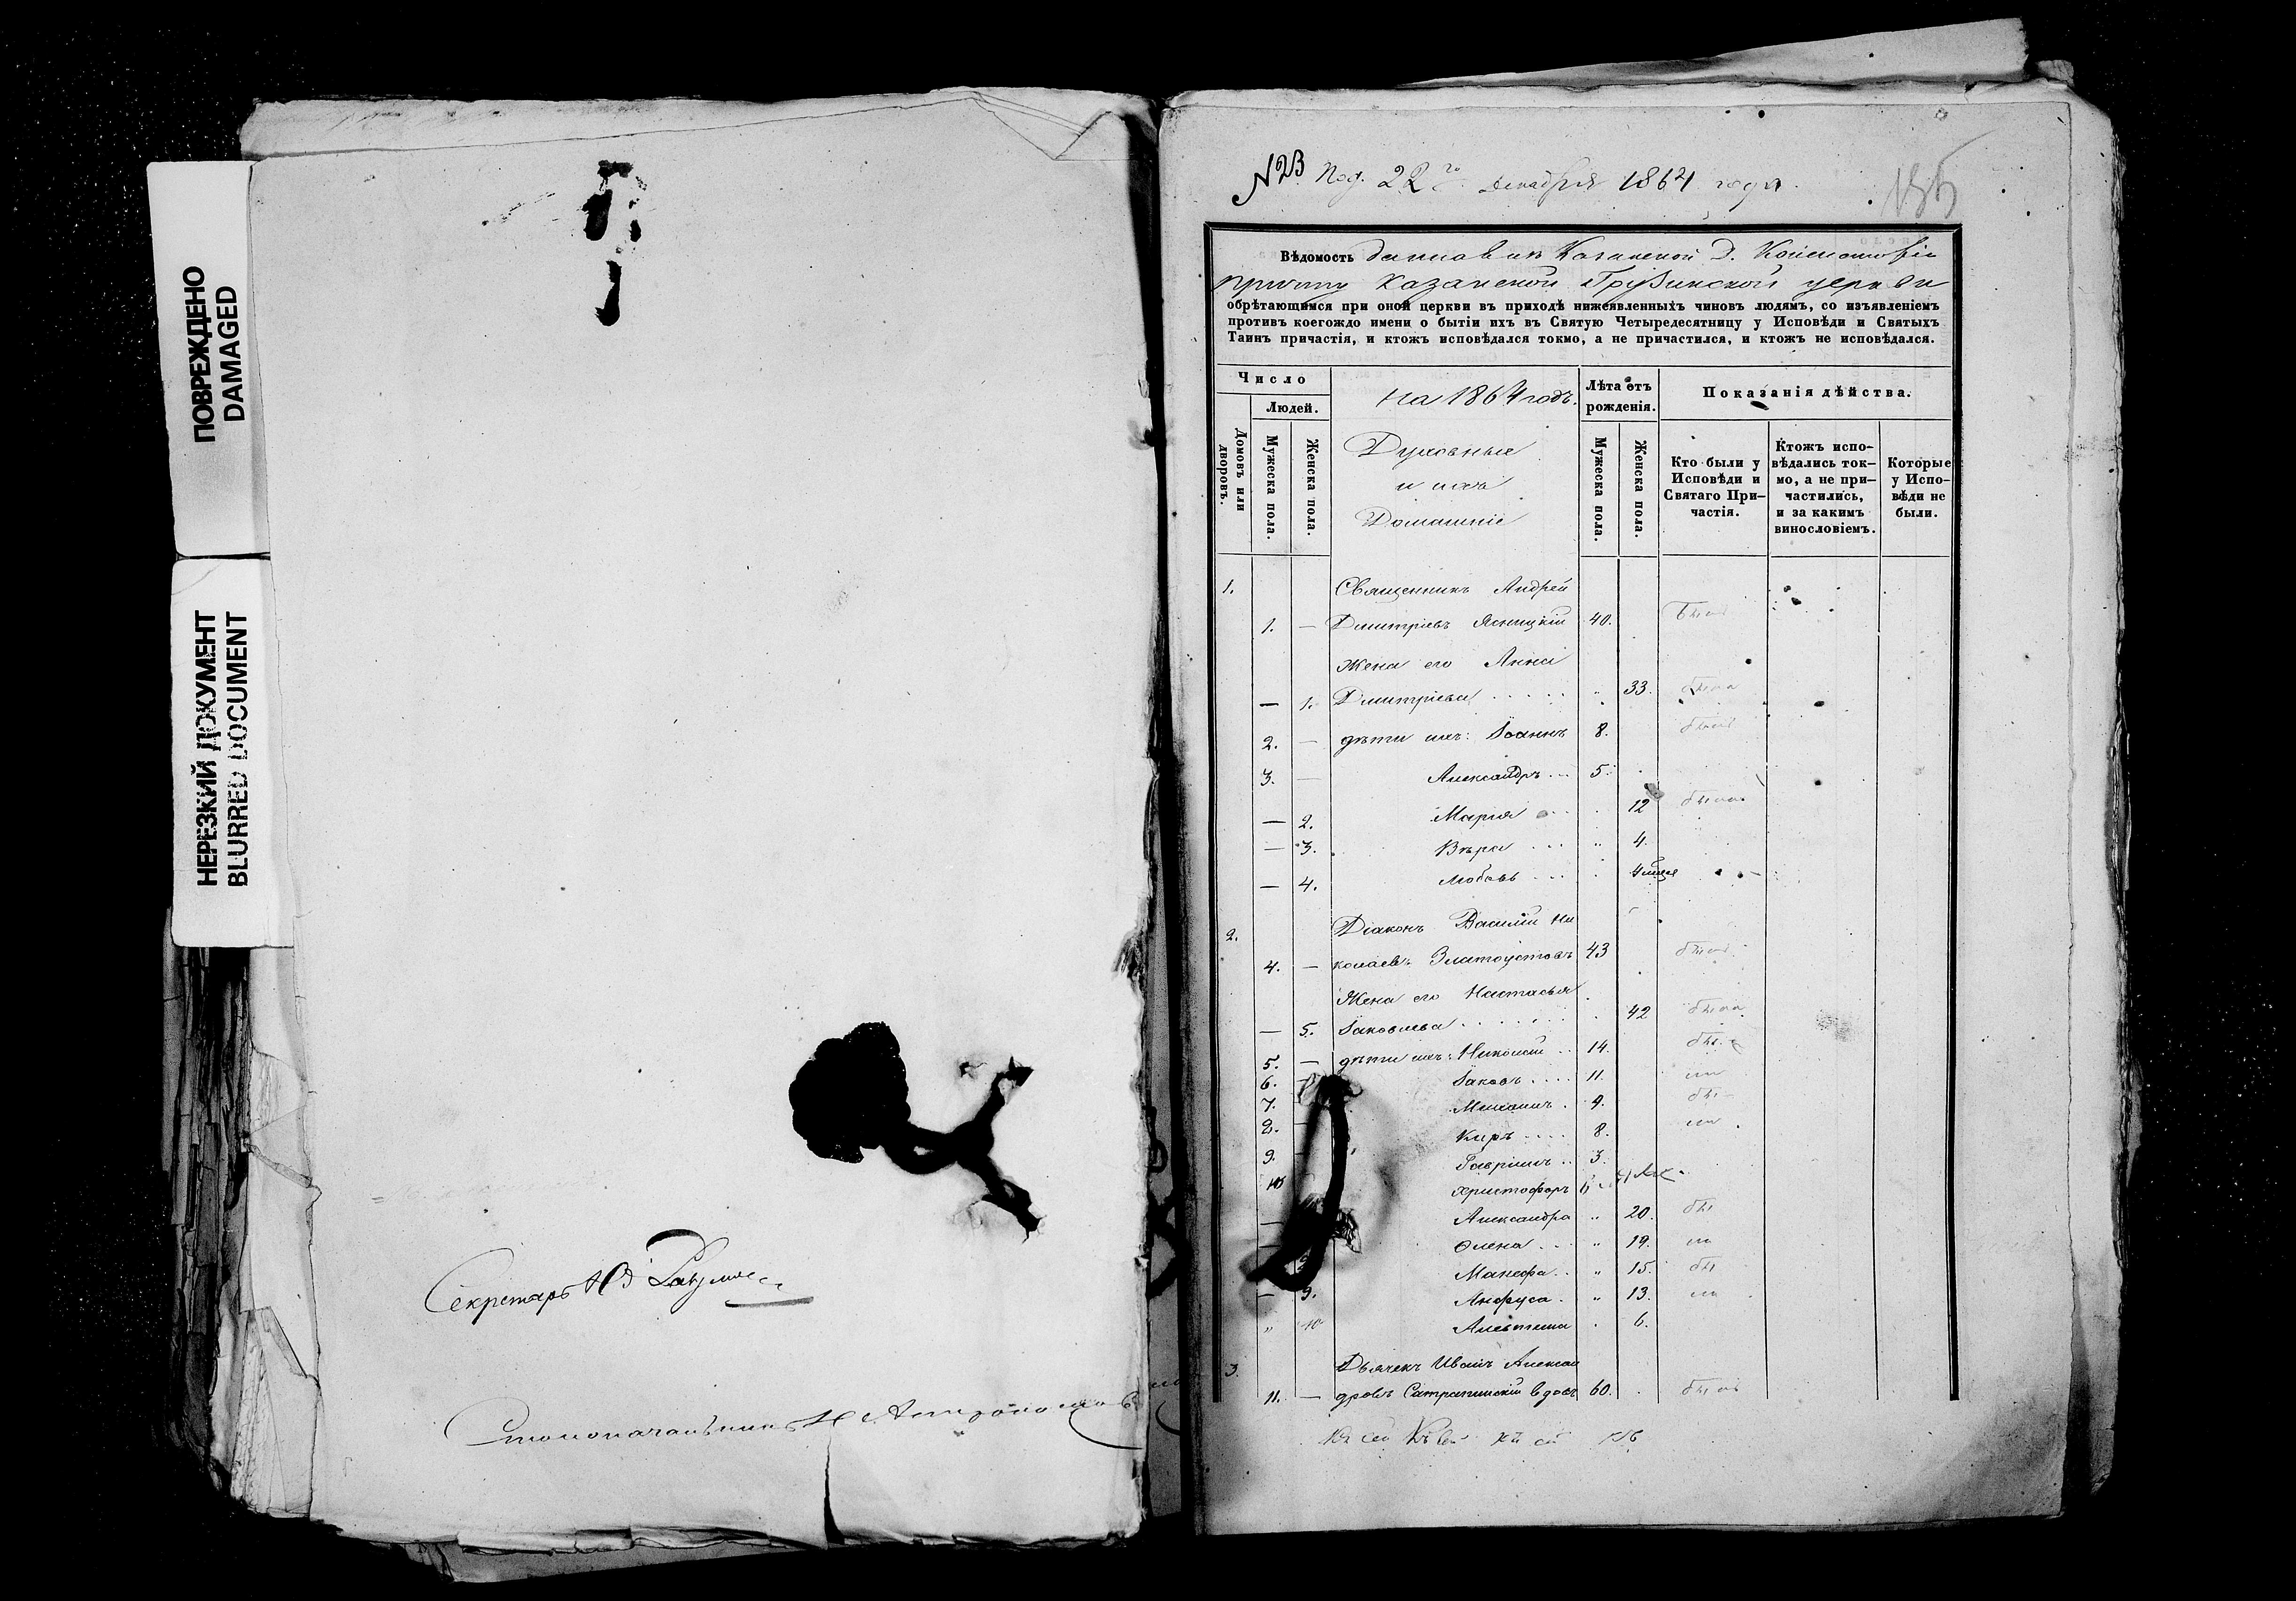 ПОВРЕЖДЕНО
DAMAGED
НЕРЕЗКИЙ ДОКУМЕНТ
BLURRED DOCUMENT
Секретарь
Столоначальникъ
№23 Под. 22го Декабря 1864 года.
Вѣдомость Казанской Д. Консисторіи
причту Казанской Грузинской церкви
обрѣтающимся при оной церкви въ приходѣ нижеявленныхъ чиновъ людямъ, со изъявленіемъ
противъ коегождо имени о бытіи ихъ въ Святую Четыредесятницу у Исповѣди и Святыхъ
Таинъ причастія, и ктожъ исповѣдался токмо, а не причастился, и ктожъ не исповѣдался.
Число
Людей.
Домовъ или дворовъ.
Мужеска пола.
Женска пола.
на 1864 годъ.
Духовные
и ихъ
Домашніе
Лѣта отъ
рожденія.
Мужеска пола.
Женска пола.
Показанія дѣйства.
Кто были у
Исповѣди и
Святаго При-
частія.
Ктожъ испо-
вѣдались ток-
мо, а не при-
частились,
и за какимъ
винословіемъ.
Которые
у Испо-
вѣди не
были.
1. Священникъ Андрей
1. — Дмитріевъ Ясницкій 40. былъ
Жена его Анна
— 1. Дмитріева . . . . . „ 33. была
2. — дѣти ихъ: Іоаннъ 8. былъ
3. — Александръ . . . 5.
— 2. Марія . . . 12 была
— 3. Вѣра . . . „ 4.
— 4. Любовь . . . 4 мѣся
2. Діаконъ Василій Ни
4. — колаевъ Златоустовъ 43 былъ
Жена его Настасья
— 5. Іаковлева . . . . . . 42 была
5. — дѣти ихъ: Николай . . 14.
6. — Іаковъ . . . . 11.
7. Михаилъ . 9.
8. — Киръ . . . . 8.
9. Гавріилъ . . 3.
10 Христофоръ
— Александра „ 20.
Олена . . . „ 19.
Манефа . . „ 15.
— 9. Анфуса . „ 13.
„ 10 Алевтина . 6.
3. Дьячекъ Иванъ Алексан
11. — дровъ Сатрапинскій вдовъ 60. былъ